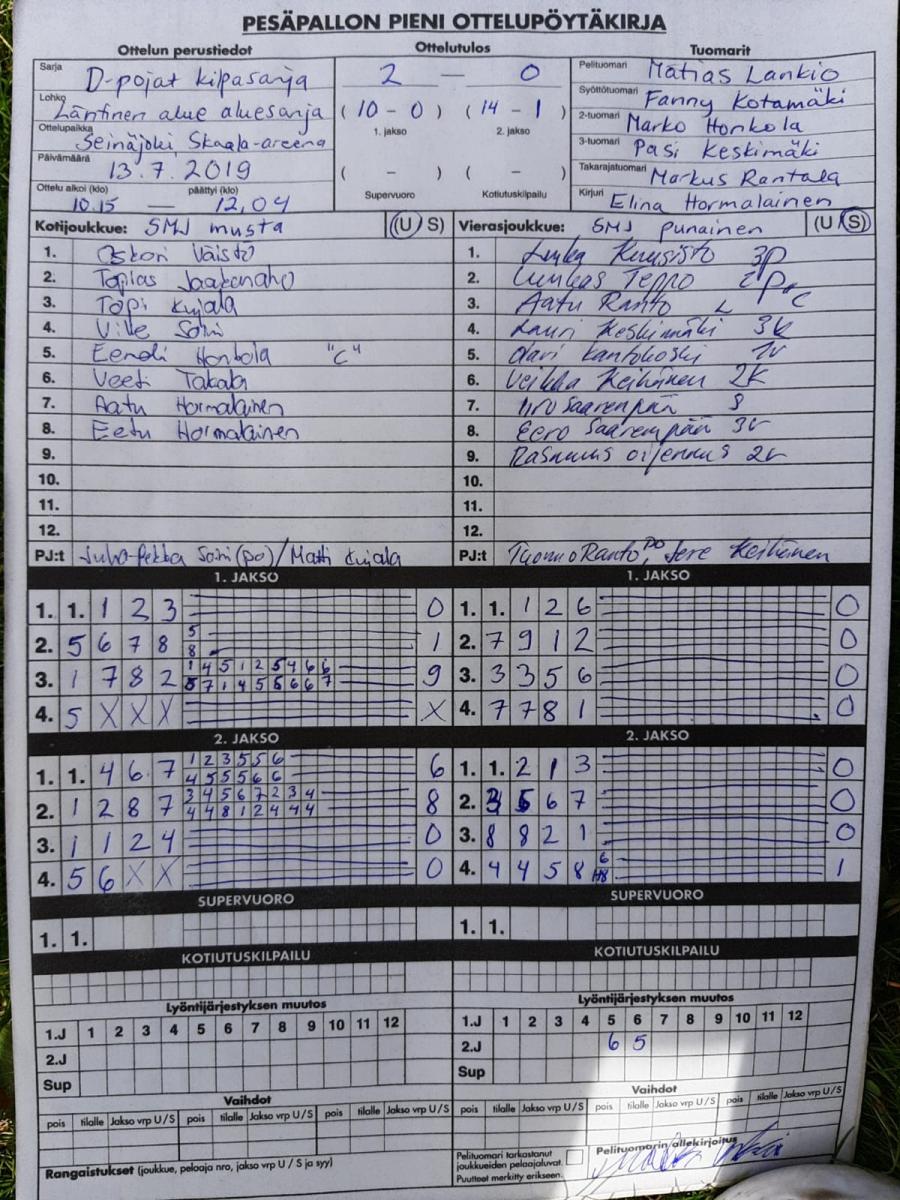 PESÄPALLON PIENI OTTELUPÖYTÄKIRJA
Ottelun perustiedot Ottelutulos Tuomarit
Sarja D-pojat kilpasarja
Lohko Läntinen alue aluesarja
Ottelupaikka Seinäjoki, Skaala-areena
Päivämäärä 13.7.2019
Ottelu alkoi (klo) päättyi (klo)
10.15 — 12,04
2 — 0
(10 - 0) (14 - 1)
1. jakso 2. jakso
( - ) ( - )
Supervuoro Kotiutuskilpailu
Pelituomari Matias Lankio
Syöttötuomari Fanny Kotamäki
2-tuomari Marko Honkola
3-tuomari Pasi Keskimäki
Takarajatuomari Markus Rantala
Kirjuri Elina Hormalainen
Kotijoukkue: SMJ musta (U/S)
1. Oskari Väistö
2. Topias Jaakonaho
3. Topi Kujala
4. Ville Soini
5. Eemeli Honkola "C"
6. Veeti Takala
7. Aatu Hormalainen
8. Eetu Hormalainen
9.
10.
11.
12.
PJ:t Juho-Pekka Soini (po) / Matti Kujala
Vierasjoukkue: SMJ punainen (U/S)
1. Kuusisto 3P
2. Teppo 2P
3. Aatu Ranto L C
4. Lauri Keskimäki 3K
5. Kantokoski 1V
6. Veikka Keihänen 2K
7. Saarenpää S
8. Eero Saarenpää 3V
9. Rasmus Oijennus 2V
10.
11.
12.
PJ:t Tuomo Ranto PO, Jere Keihänen
1. JAKSO
1. 1. 1 2 3 0
2. 5 6 7 8 5 8 1
3. 1 7 8 2 1 4 5 1 2 5 4 6 6 9
5 7 1 4 5 6 6 6 7
4. 5 X X X X
1. JAKSO
1. 1. 1 2 6 0
2. 7 9 1 2 0
3. 3 3 5 6 0
4. 7 7 8 1 0
2. JAKSO
1. 1. 4 6 7 1 2 3 5 5 6 6
4 5 5 5 6 6
2. 1 2 8 7 3 4 5 6 7 2 3 4 8
4 4 8 1 2 4 4 4
3. 1 1 2 4 0
4. 5 6 X X 0
2. JAKSO
1. 1. 2 1 3 0
2. 3 5 6 7 0
3. 8 8 2 1 0
4. 4 4 5 8 6 8 1
SUPERVUORO
1. 1.
SUPERVUORO
1. 1.
KOTIUTUSKILPAILU
KOTIUTUSKILPAILU
Lyöntijärjestyksen muutos
1.J 1 2 3 4 5 6 7 8 9 10 11 12
2.J
Sup
Lyöntijärjestyksen muutos
1.J 1 2 3 4 5 6 7 8 9 10 11 12
2.J 6 5
Sup
Vaihdot
pois tilalle Jakso vrp U / S pois tilalle Jakso vrp U / S pois tilalle Jakso vrp U / S
Vaihdot
pois tilalle Jakso vrp U / S pois tilalle Jakso vrp U / S pois tilalle Jakso vrp U / S
Rangaistukset (joukkue, pelaaja nro, jakso vrp U / S ja syy)
Pelituomari tarkastanut
joukkueiden pelaajaluvat.
Puutteet merkitty erikseen.
Pelituomarin allekirjoitus